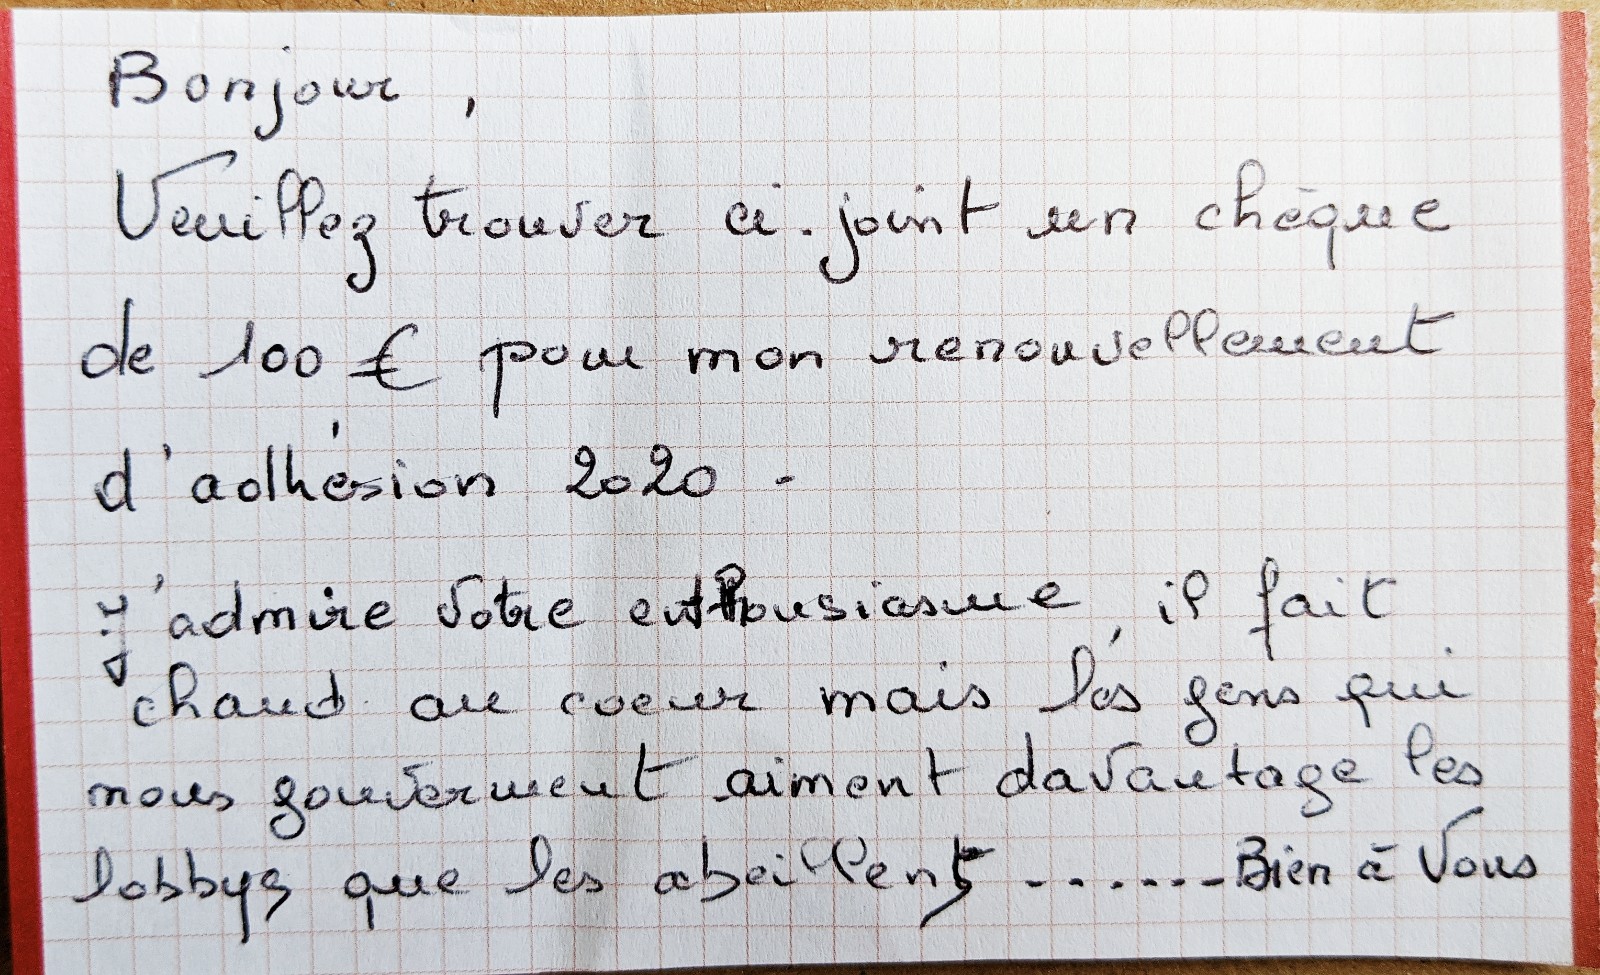 Bonjour,
Veuillez trouver ci-joint un chèque
de 100 € pour mon renouvellement
d'adhésion 2020.
J'admire votre enthousiasme, il fait
chaud au coeur mais les gens qui
nous gouvernent aiment davantage les
lobbys que les abeilles ....... Bien à Vous